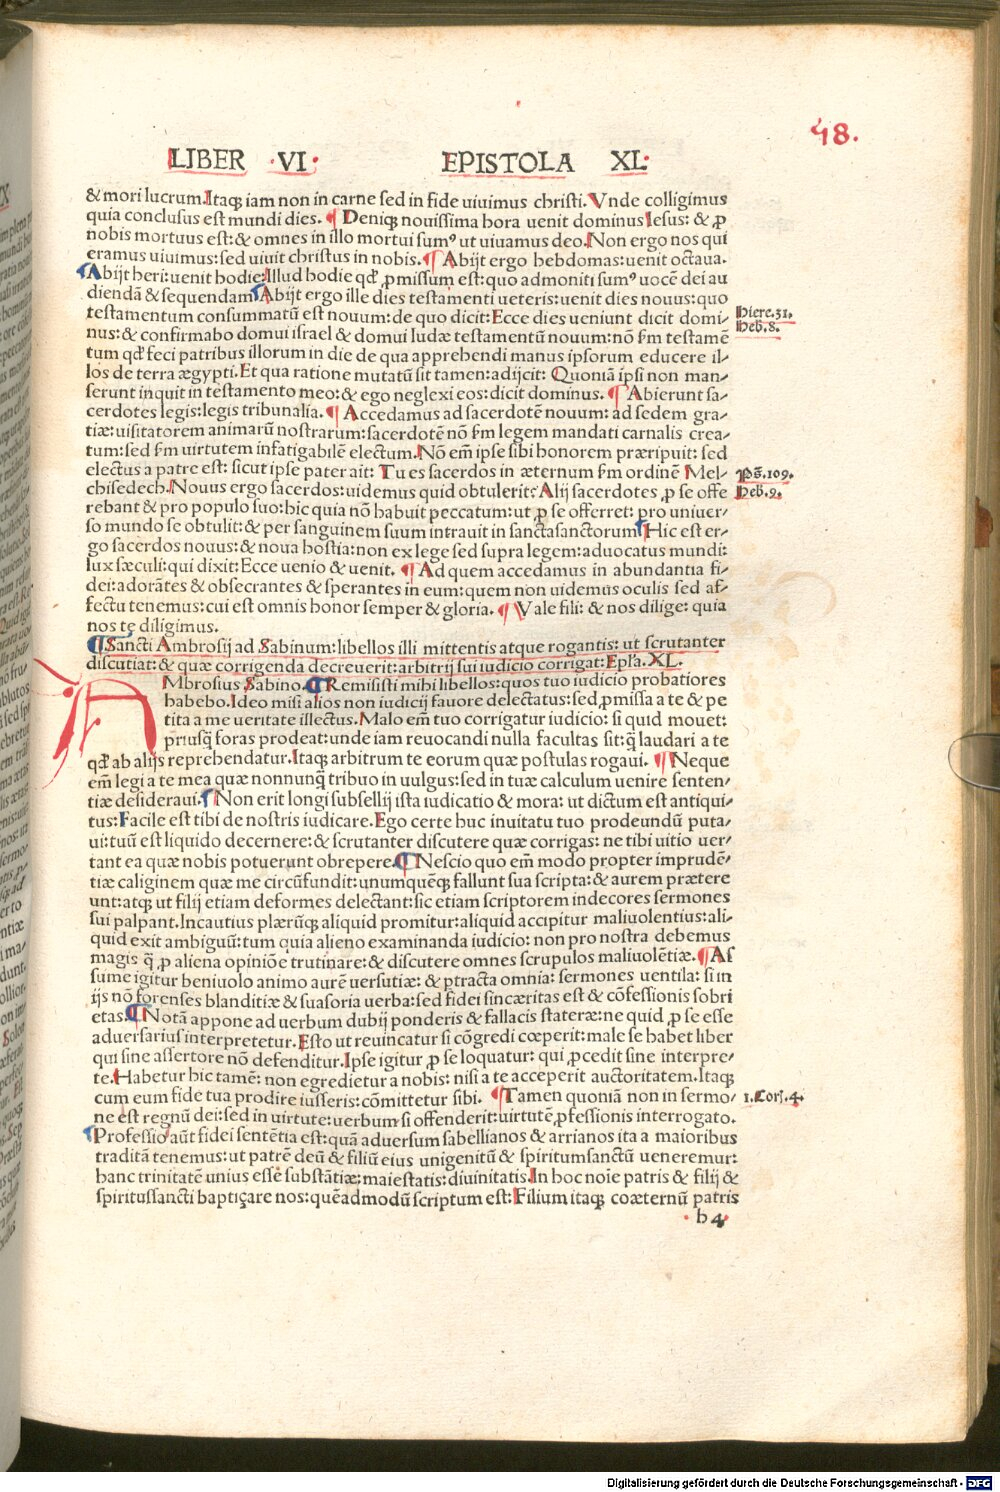 48.
LIBER VI. EPISTOLA XL.
& mori lucrum. Itaq; iam non in carne sed in fide uiuimus christi. Vnde colligimus
quia conclusus est mundi dies. ¶ Deniq; nouissima hora uenit dominus Iesus: & ꝓ
nobis mortuus est: & omnes in illo mortui sumꝰ ut uiuamus deo. Non ergo nos qui
eramus uiuimus: sed uiuit christus in nobis. ¶ Abijt ergo hebdomas: uenit octaua.
Abijt heri: uenit hodie: Illud hodie qđ ꝓmissum est: quo admoniti sumꝰ uocē dei au
diendā & sequendam Abijt ergo ille dies testamenti ueteris: uenit dies nouus: quo
testamentum consummatū est nouum: de quo dicit: Ecce dies ueniunt dicit domi-
Hiere.31.
nus: & confirmabo domui israel & domui Iudæ testamentū nouum: nō ſm testamē
Heb.8.
tum qđ feci patribus illorum in die de qua apprehendi manus ipsorum educere il-
los de terra ægypti. Et qua ratione mutatū sit tamen: adijcit: Quoniā ipsi non man-
serunt inquit in testamento meo: & ego neglexi eos: dicit dominus. ¶ Abierunt sa-
cerdotes legis: legis tribunalia. ¶ Accedamus ad sacerdotē nouum: ad sedem gra-
tiæ: uisitatorem animarū nostrarum: sacerdotē nō ſm legem mandati carnalis crea-
tum: sed ſm uirtutem infatigabilē electum. Nō em̄ ipse sibi honorem præripuit: sed
electus a patre est: sicut ipse pater ait: Tu es sacerdos in æternum ſm ordinē Mel-
Ps̄.109.
chisedech. Nouus ergo sacerdos: uidemus quid obtulerit: Alij sacerdotes ꝓ se offe
Heb.9.
rebant & pro populo suo: hic quia nō habuit peccatum: ut ꝓ se offerret: pro uniuer-
so mundo se obtulit: & per sanguinem suum intrauit in sancta sanctorum Hic est er-
go sacerdos nouus: & noua hostia: non ex lege sed supra legem: aduocatus mundi:
lux sæculi: qui dixit: Ecce uenio & uenit. ¶ Ad quem accedamus in abundantia fi-
dei: adorātes & obsecrantes & sperantes in eum: quem non uidemus oculis sed af-
fectu tenemus: cui est omnis honor semper & gloria. ¶ Vale fili: & nos dilige: quia
nos te diligimus.
¶ Sancti Ambrosij ad Sabinum: libellos illi mittentis atque rogantis: ut scrutanter
discutiat: & quæ corrigenda decreuerit: arbitrij sui iudicio corrigat: Epl'a. XL.
AMbrosius Sabino. ¶ Remisisti mihi libellos: quos tuo iudicio probatiores
habebo. Ideo misi alios non iudicij fauore delectatus: sed ꝓmissa a te & pe
tita a me ueritate illectus. Malo em̄ tuo corrigatur iudicio: si quid mouet:
priusq̄ foras prodeat: unde iam reuocandi nulla facultas sit: q̄ laudari a te
qđ ab alijs reprehendatur. Itaq; arbitrum te eorum quæ postulas rogaui. ¶ Neque
em̄ legi a te mea quæ nonnunq̄ tribuo in uulgus: sed in tuæ calculum uenire senten-
tiæ desideraui. ¶ Non erit longi subsellij ista iudicatio & mora: ut dictum est antiqui-
tus: Facile est tibi de nostris iudicare. Ego certe huc inuitatu tuo prodeundū puta-
ui: tuū est liquido decernere: & scrutanter discutere quæ corrigas: ne tibi uitio uer-
tant ea quæ nobis potuerunt obrepere. ¶ Nescio quo em̄ modo propter imprudē-
tiæ caliginem quæ me circūfundit: unumquēq; fallunt sua scripta: & aurem prætere
unt: atq; ut filij etiam deformes delectant: sic etiam scriptorem indecores sermones
sui palpant. Incautius plærūq; aliquid promitur: aliquid accipitur maliuolentius: ali-
quid exit ambiguū: tum quia alieno examinanda iudicio: non pro nostra debemus
magis q̄ ꝓ aliena opiniōe trutinare: & discutere omnes scrupulos maliuolētiæ. ¶ As
sume igitur beniuolo animo aurē uersutiæ: & ptracta omnia: sermones uentila: si in
ijs nō forenses blanditiæ & suasoria uerba: sed fidei sincæritas est & cōfessionis sobri
etas. ¶ Notā appone ad uerbum dubij ponderis & fallacis stateræ: ne quid ꝓ se esse
aduersarius interpretetur. Esto ut reuincatur si cōgredi cœperit: male se habet liber
qui sine assertore nō defenditur. Ipse igitur ꝓ se loquatur: qui ꝓcedit sine interpre-
te. Habetur hic tamē: non egredietur a nobis: nisi a te acceperit auctoritatem. Itaq;
cum eum fide tua prodire iusseris: cōmittetur sibi. ¶ Tamen quoniā non in sermo-
1.Cori.4.
ne est regnū dei: sed in uirtute: uerbum si offenderit: uirtutē ꝓfessionis interrogato.
Professio aūt fidei sentētia est: quā aduersum sabellianos & arrianos ita a maioribus
traditā tenemus: ut patrē deū & filiū eius unigenitū & spiritumsanctū ueneremur:
hanc trinitatē unius esse substātiæ: maiestatis: diuinitatis. In hoc noīe patris & filij &
spiritussancti baptiçare nos: quēadmodū scriptum est: Filium itaq; coæternū patris
h 4
Digitalisierung gefördert durch die Deutsche Forschungsgemeinschaft - DFG